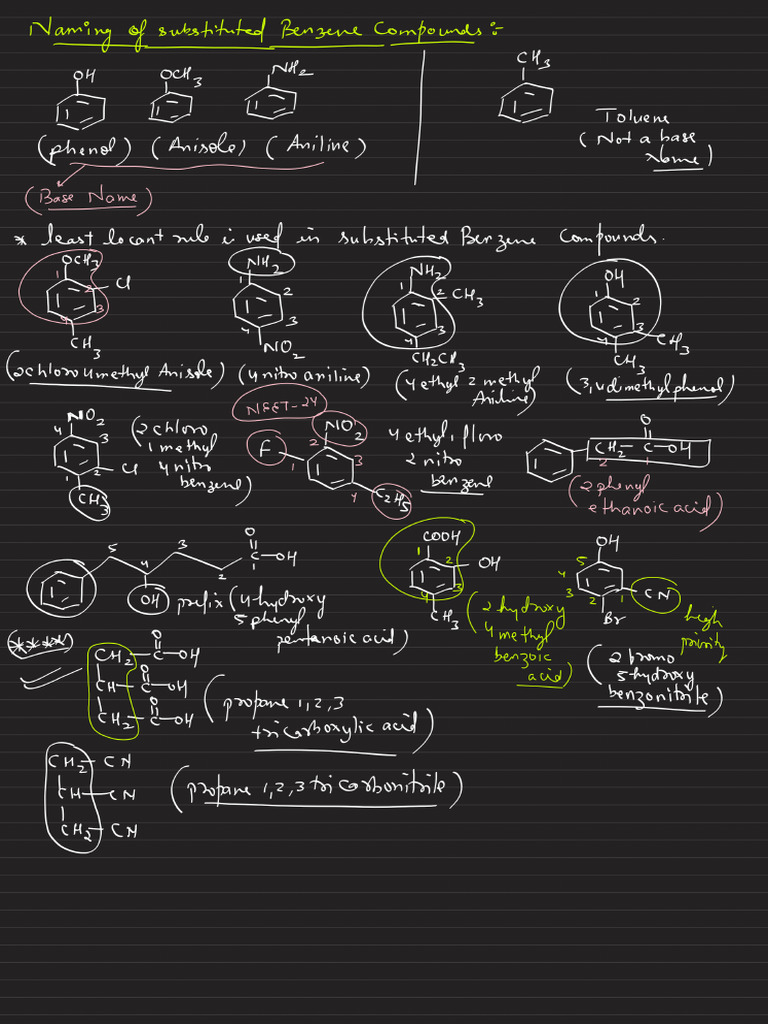 Naming of substituted Benzene Compounds :-
OH OCH3 NH2 CH3
(phenol) (Anisole) (Aniline)
Toluene
(Not a base
Name)
(Base Name)
* least locant rule is used in substituted Benzene Compounds.
OCH3 1 2 Cl 3 4 CH3
NH2 1 2 3 4 NO2
NH2 1 2 CH3 3 4 CH2CH3
OH 1 2 3 CH3 4 CH3
(2chloro 4methyl Anisole)
(4nitro aniline)
(4ethyl 2 methyl
Aniline)
(3,4dimethylphenol)
NEET-24
4 NO2 3 2 Cl 1 CH3
(2chloro
1 methyl
4 nitro
benzene)
F 1 2 NO2 3 4 C2H5
4 ethyl 1 floro
2 nitro
benzene
O
CH2 - C - OH
2 1
(2 phenyl
ethanoic acid)
5 4 3 2 O C - OH 1
OH
prefix (4-hydroxy
5 phenyl
pentanoic acid)
COOH 1 2 OH 3 4 CH3
(2 hydroxy
4 methyl
benzoic
acid)
OH 5 4 3 2 1 CN Br
high
priority
(2 bromo
5 hydroxy
benzonitrile)
****
CH2 - C - OH O
CH - C - OH O
CH2 - C - OH O
(propane 1,2,3
tricarboxylic acid)
CH2 - CN
CH - CN
CH2 - CN
(propane 1,2,3 tricarbonitrile)